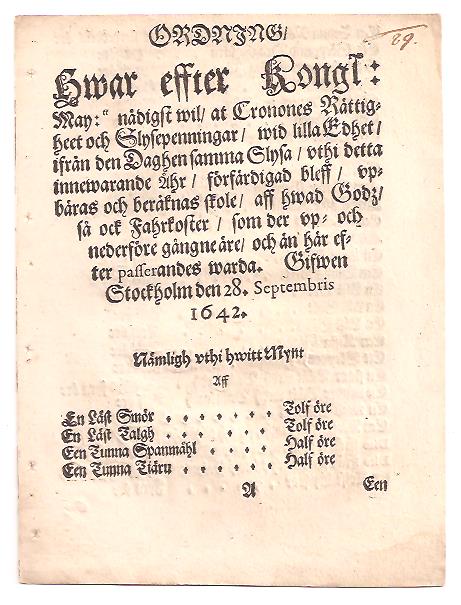 ORDNING/
29.
Hwar effter Kongl:
May:ᵗ nädigst wil/ at Cronones Rättig-
heet och Slysepenningar/ wid lilla Edhet/
ifrån den Daghen samma Slysa/ vthi detta
innewarande Åhr/ förfärdigad bleff/ vp-
bäras och beräknas skole/ aff hwad Godz/
så ock Fahrkoster/ som der vp- och
nederföre gångne äre/ och än här ef-
ter passerandes warda. Gifwen
Stockholm den 28. Septembris
1642.
Nämligh vthi hwitt Mynt
Aff
En Läst Smör . . . . . . . Tolf öre
En Läst Talgh . . . . . . Tolf öre
Een Tunna Spanmåhl . . . . . Half öre
Een Tunna Tiäru . . . . . . Half öre
A Een